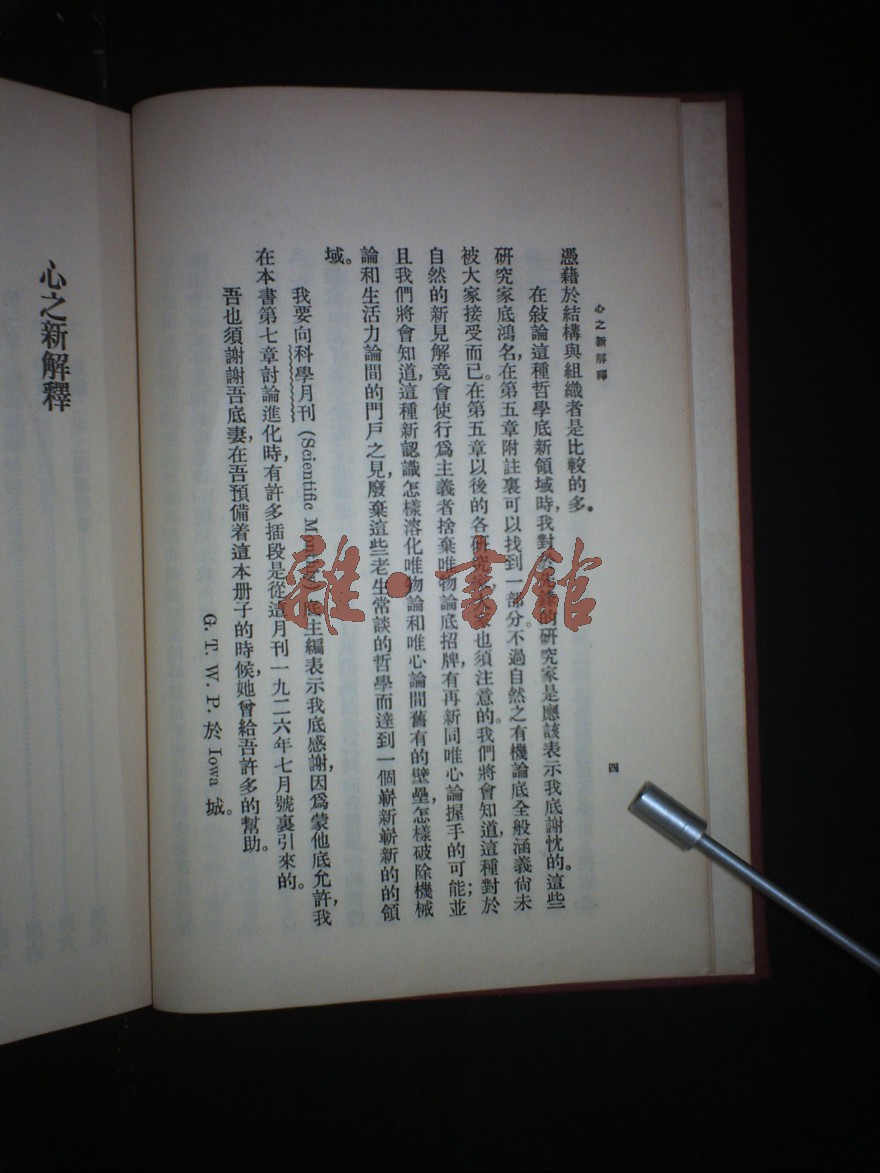 心之新解釋
四
憑藉於結構與組織者是比較的多。
在敍論這種哲學底新領域時，我對於先鋒的研究家是應該表示我底謝忱的。這些
研究家底鴻名，在第五章附註裏可以找到一部分。不過自然之有機論底全般涵義尙未
被大家接受而已。在第五章以後的各研究家也須注意的。我們將會知道，這種對於
自然的新見解竟會使行爲主義者捨棄唯物論底招牌，有再新同唯心論握手的可能；並
且我們將會知道，這種新認識怎樣溶化唯物論和唯心論間舊有的壁壘，怎樣破除機械
論和生活力論間的門戶之見，廢棄這些老生常談的哲學而達到一個嶄新嶄新的的領
域。
我要向科學月刊 (Scientific Monthly) 底主編表示我底感謝，因爲蒙他底允許，我
在本書第七章討論進化時，有許多插段是從這月刊一九二六年七月號裏引來的。
吾也須謝謝吾底妻，在吾預備着這本册子的時候，她曾給吾許多的幫助。
G. T. W. P. 於 Iowa 城。
心之新解釋
雜·書館